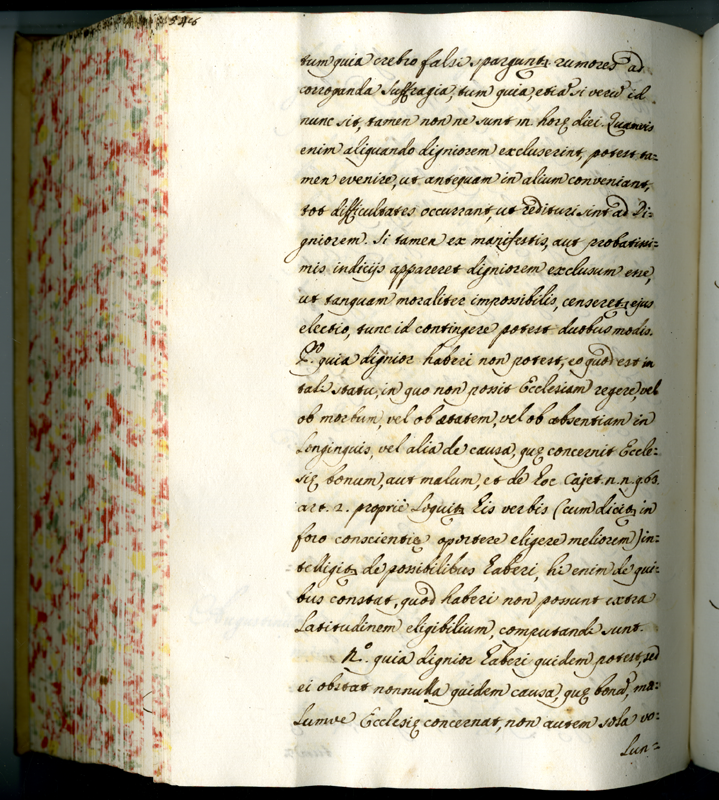 546
tum quia crebro falsi sparguntr rumores ad
corroganda suffragia, tum quia, etiā si verū id
nunc sit, tamen non ne sunt in horę diei. Quamvis
enim aliquando digniorem excluserint, potest ta=
men evenire, ut antequam in alium conveniant,
tot difficultates occurrant ut redituri sint ad Di=
gniorem. Si tamen ex manifestis, aut probatissi=
mis indicijs appareret digniorem exclusum esse,
ut tanquam moraliter impossibilis, censeretr ejus
electio, tunc id contingere potest duobus modis.
Pº. quia dignior haberi non potest, eo quod est in
tali statu, in quo non possit Ecclesiam regere, vel
ob morbum, vel ob ætatem, vel ob absentiam in
longinquis, vel alia de causa, quę concernit Eccle=
się bonum, aut malum, et de hoc Cajet. n. n. q. 63.
art. 2. proprie loquitr his verbis (cum dicitr in
foro conscientię oportere eligere meliorem) in=
telligitr de possibilibus haberi, hi enim de qui=
bus constat, quod haberi non possunt extra
latitudinem eligibilium, computandi sunt.
2º. quia dignior haberi quidem potest, sed
ei obstat nonnulla quidem causa, quę bonū, ma=
lumve Ecclesię concernat, non autem sola vo=
lun=